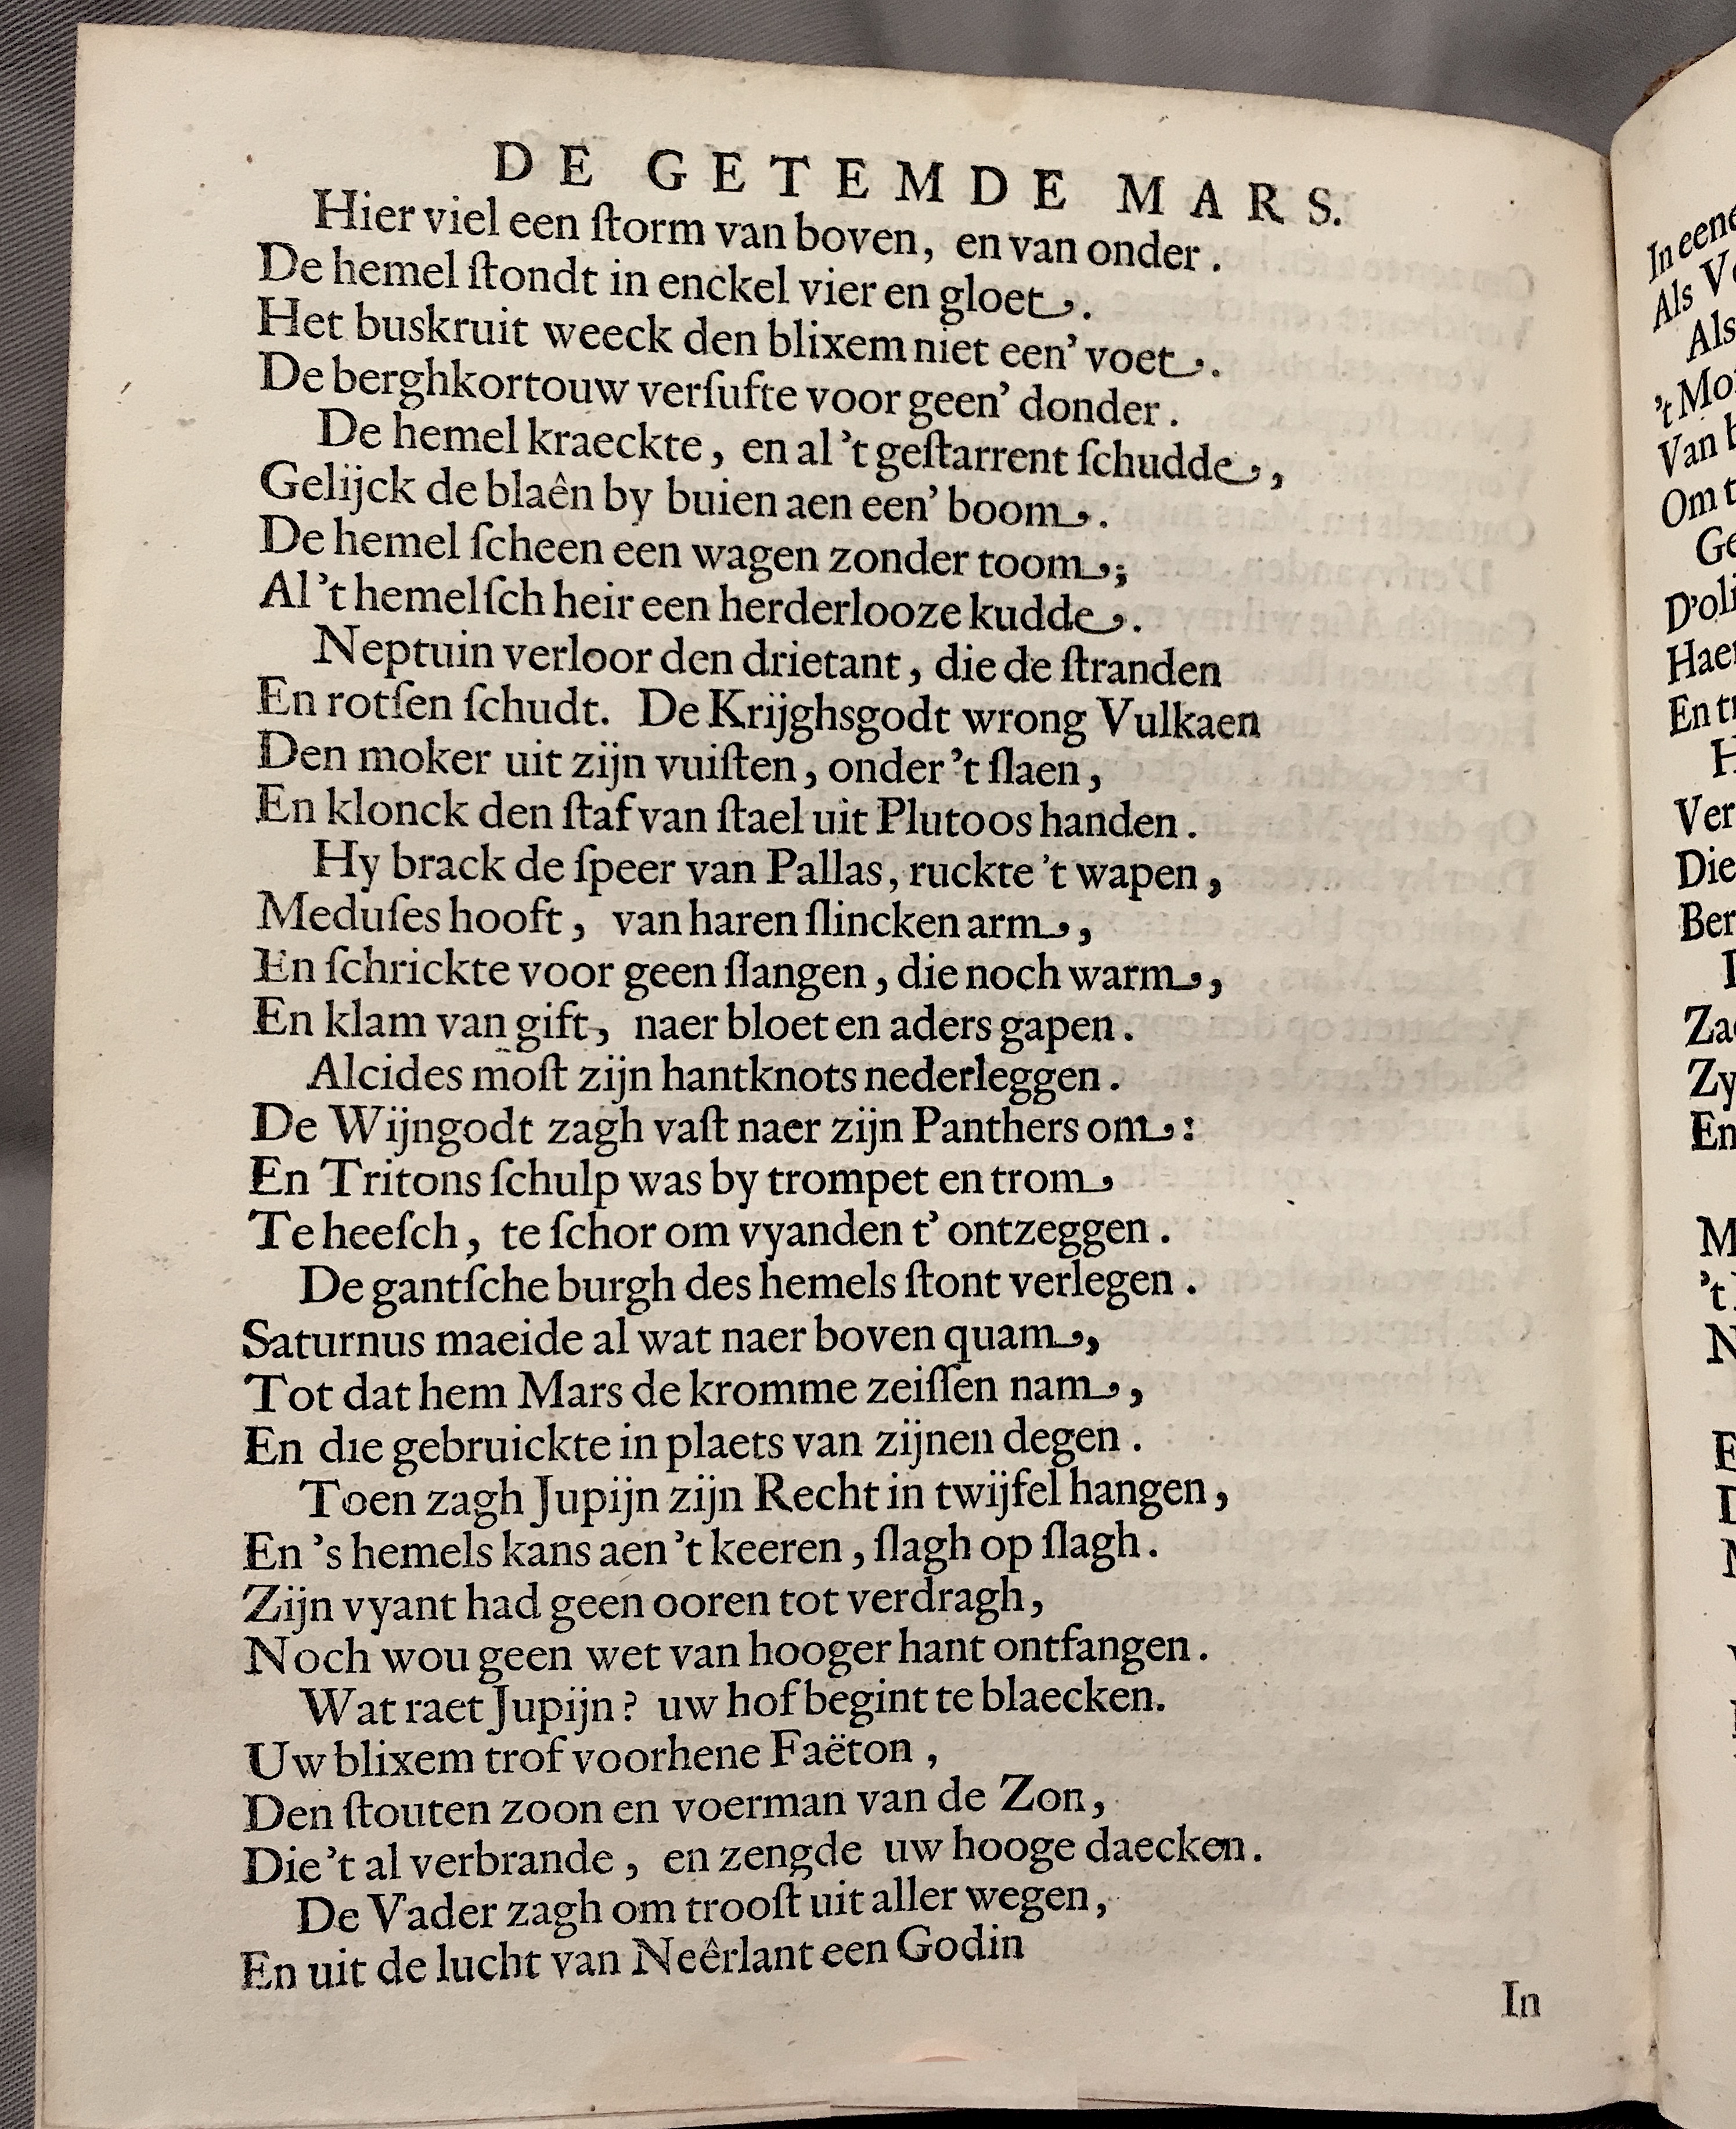 DE GETEMDE MARS.
Hier viel een ſtorm van boven, en van onder.
De hemel ſtondt in enckel vier en gloet.
Het buskruit weeck den blixem niet een' voet.
De berghkortouw verſufte voor geen' donder.
De hemel kraeckte, en al 't geſtarrent ſchudde,
Gelijck de blaên by buien aen een' boom.
De hemel ſcheen een wagen zonder toom;
Al 't hemelſch heir een herderlooze kudde.
Neptuin verloor den drietant, die de ſtranden
En rotſen ſchudt. De Krijghsgodt wrong Vulkaen
Den moker uit zijn vuiſten, onder 't ſlaen,
En klonck den ſtaf van ſtael uit Plutoos handen.
Hy brack de ſpeer van Pallas, ruckte 't wapen,
Meduſes hooft, van haren ſlincken arm,
En ſchrickte voor geen ſlangen, die noch warm,
En klam van gift, naer bloet en aders gapen.
Alcides moſt zijn hantknots nederleggen.
De Wijngodt zagh vaſt naer zijn Panthers om:
En Tritons ſchulp was by trompet en trom
Te heeſch, te ſchor om vyanden t' ontzeggen.
De gantſche burgh des hemels ſtont verlegen.
Saturnus maeide al wat naer boven quam,
Tot dat hem Mars de kromme zeiſſen nam,
En die gebruickte in plaets van zijnen degen.
Toen zagh Jupijn zijn Recht in twijfel hangen,
En 's hemels kans aen 't keeren, ſlagh op ſlagh.
Zijn vyant had geen ooren tot verdragh,
Noch wou geen wet van hooger hant ontfangen.
Wat raet Jupijn? uw hof begint te blaecken.
Uw blixem trof voorhene Faëton,
Den ſtouten zoon en voerman van de Zon,
Die 't al verbrande, en zengde uw hooge daecken.
De Vader zagh om trooſt uit aller wegen,
En uit de lucht van Neêrlant een Godin
In
In eene
Als
Als
't Mo
Van
Om t
Ge
D'oli
Hae
En t
H
Ver
Die
Ber
Za
Zy
En
M
't
N
E